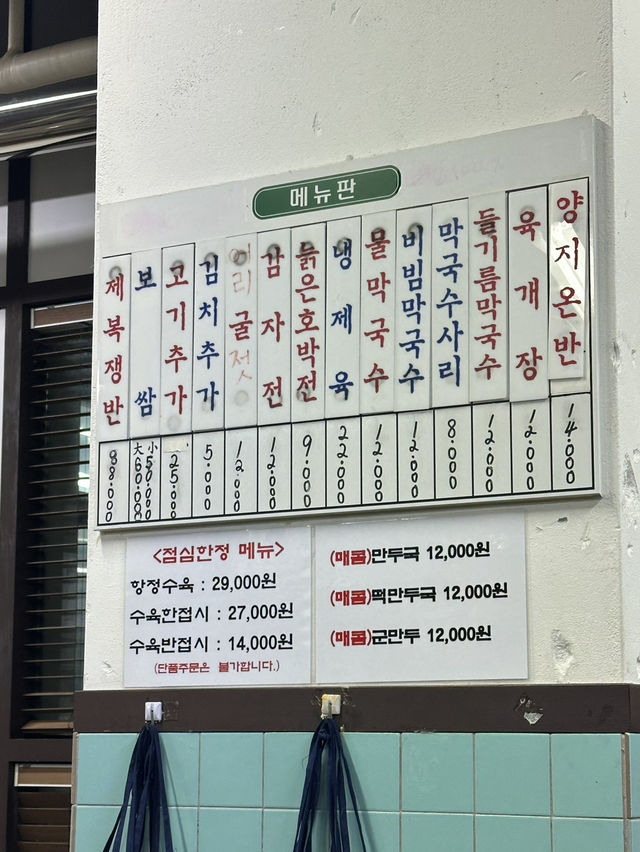 메뉴판
제복쟁반 88.000
보쌈 大 60.000 小 50.000
고기추가 25.000
김치추가 5.000
어리굴젓 12.000
감자전 12.000
늙은호박전 9.000
냉제육 22.000
물막국수 12.000
비빔막국수 12.000
막국수사리 8.000
들기름막국수 12.000
육개장 12.000
양지온반 14.000
<점심한정 메뉴>
항정수육 : 29,000원
수육한접시 : 27,000원
수육반접시 : 14,000원
(단품주문은 불가합니다.)
(매콤)만두국 12,000원
(매콤)떡만두국 12,000원
(매콤)군만두 12,000원